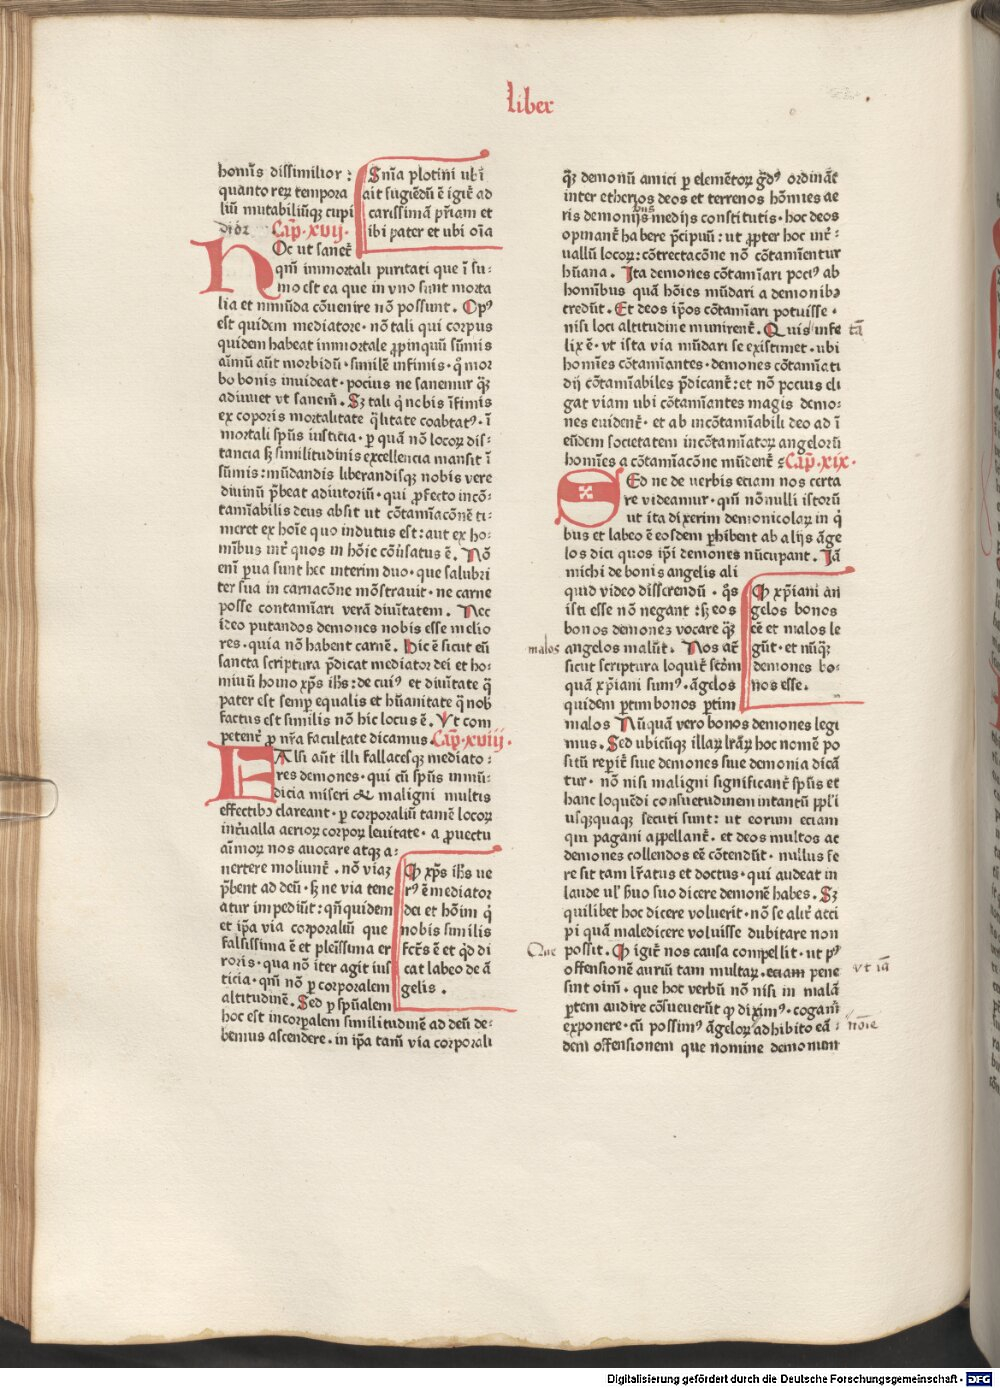 liber
homīs dissimilior :
quanto reꝝ tempora
liū mutabiliūqꝫ cupi
dior Cap̄·xvij·
Sn̄ia plotini ubi
ait fugiēdū ē igit̄ ad
carissimā pr̄iam et
ibi pater et ubi oīa
HOc ut sanet̄
qm̄ immortali puritati que ī su⸗
mo est ea que in vno sunt morta
lia et inmūda cōuenire nō possunt. Opꝰ
est quidem mediatore· nō tali qui corpus
quidem habeat immortale ꝓpinquū sūmis
aīmū aūt morbidū· similē infimis· q̄ mor
bo bonis inuideat· pocius ne sanemur qꝫ
adiuuet vt sanem̄. Sꝫ tali q̄ nobis īfimis
ex coporis mortalitate q̄litate coabtatꝰ· ī
mortali sp̄us iusticia· ꝑ quā nō locoꝝ dis⸗
tancia sꝫ similitudinis excellencia mansit ī
sūmis: mūdandis liberandisqꝫ nobis vere
diuinū p̄beat adiutoriū· qui ꝓfecto incō⸗
tamīabilis deus absit ut cōtamīacōnē ti⸗
meret ex hoīe quo indutus est: aut ex ho⸗
mībus int̄ quos in hōīe cōūsatus ē. Nō
enī ꝑua sunt hec interim duo· que salubri
ter sua in carnacōne mōstrauit· ne carne
posse contamīari verā diuītatem. Nec
ideo putandos demones nobis esse melio
res· quia nō habent carnē. hic ē sicut eū
sancta scriptura p̄dicat mediator dei et ho⸗
minū homo xp̄s ih̄s: de cuiꝰ et diuītate q̄
pater est semꝑ equalis et hūanitate q̄ nob
factus est similis nō hic locus ē. Vt com
petent̄ ꝓ nr̄a facultate dicamus. Cap̄·xviij·
FAlsi aūt illi fallacesqꝫ mediato⸗
res demones· qui cū sp̄us inmū⸗
dicia miseri & maligni multis
effectibꝫ clareant· ꝑ corporaliū tamē locoꝝ
int̄ualla aerioꝝ corpoꝝ leuitate· a ꝓuectu
aīmoꝝ nos auocare atqꝫ a⸗
uertere moliunt̄· nō viaꝫ
p̄bent ad deū· sꝫ ne via tene
atur impediūt: qn̄quidem
et ip̄a via corporaliū que
falsissima ē et pleīssima er
roris· qua nō iter agit ius
ticia· qm̄ nō ꝑ corporalem
altitudinē. Sed ꝑ sp̄ualem
ꝙ xp̄s ih̄s ue
rꝰ ē mediator
dei et hōīm q̄
nobis similis
fct̄s ē et qd̄ di
cat labeo de ā
gelis ·
hoc est incorꝑalem similitudinē ad deū de⸗
bemus ascendere· in ip̄a tam̄ via corporali
qꝫ demonū amici ꝑ elemētoꝝ gd̄ꝰ ordināt
inter etherios deos et terrenos hōmies ae
ris demonijs medijs constitutis· hoc deos
opinant̄ habere p̄cipuū: ut ꝓpter hoc int̄⸗
uallū locoꝝ: cōtrectacōne nō cōtamīentur
hūana. Ita demones cōtamīari pociꝰ ab
homībus quā hōīes mūdari a demonibꝫ
credūt. Et deos ip̄os cōtamīari potuisse·
nisi loci altitudine munirent̄. Quis infe tā
lix ē· vt ista via mūdari se existimet· ubi
homīes cōtamīantes· demones cōtamīati
dij cōtamīabiles p̄dicant̄: et nō pocius eli
gat viam ubi cōtamīantes magis demo⸗
nes euident̄· et ab incōtamīabili deo ad ī
eūdem societatem incōtamīatoꝝ angelorū
homīes a cōtamīacōne mūdent̄ Cap̄·xix·
SEd ne de uerbis eciam nos certa
re videamur· qm̄ nōnulli istorū
ut ita dixerim demonicolaꝝ in q̄
bus et labeo ē eosdem ꝑhibent ab alijs āge
los dici quos ip̄i demones nūcupant. Iā
michi de bonis angelis ali
quid video disserendū· q̄s
isti esse nō negant: sꝫ eos
bonos demones vocare qꝫ
malos angelos malūt. Nos aūt
sicut scriptura loquit̄ scd̄m
quā xp̄iani sumꝰ· āgelos
quidem ꝑtim bonos ꝑtim
ꝙ xp̄iani an
gelos bonos
cē et malos le
gūt· et nūqꝫ
demones bo⸗
nos esse.
malos Nūquā vero bonos demones legi
mus. Sed ubicūqꝫ illaꝝ lr̄aꝝ hoc nomē po
sitū reꝑit̄ siue demones siue demonia dicā
tur· nō nisi maligni significant̄ sp̄us et
hanc loquēdi consuetudinem intantū pp̄li
usqꝫquaqꝫ secuti sunt: ut eorum eciam
qui pagani appellant̄· et deos multos ac
demones collendos eē cōtendūt· nullus fe
re sit tam lr̄atus et doctus· qui audeat in
laude uł huo suo dicere demonē habes. Sꝫ
quilibet hoc dicere voluerit· nō se alit̄ acci
pi quā maledicere voluisse dubitare non
Que possit. ꝙ igit̄ nos causa compellit· ut pꝰ
offensionē auriū tam multaꝝ· eciam pene vt iā
sint oīm· que hoc verbū nō nisi in malā
ꝑtem audire cōsueuerūt ꝙ diximꝰ· cogam̄
exponere· cū possimꝰ āgeloꝝ adhibito eā⸗ noīe
dem offensionem que nomine demonum